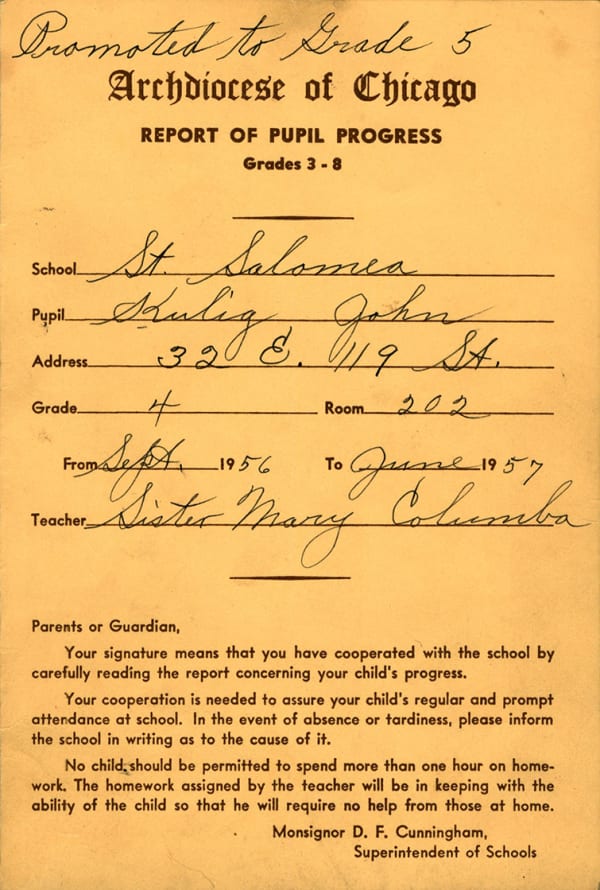 Promoted to Grade 5
Archdiocese of Chicago
REPORT OF PUPIL PROGRESS
Grades 3 - 8
School St. Salomea
Pupil Kulig John
Address 32 E. 119 St.
Grade 4 Room 202
From Sept. 1956 To June 1957
Teacher Sister Mary Columba
Parents or Guardian,
Your signature means that you have cooperated with the school by
carefully reading the report concerning your child's progress.
Your cooperation is needed to assure your child's regular and prompt
attendance at school. In the event of absence or tardiness, please inform
the school in writing as to the cause of it.
No child should be permitted to spend more than one hour on home-
work. The homework assigned by the teacher will be in keeping with the
ability of the child so that he will require no help from those at home.
Monsignor D. F. Cunningham,
Superintendent of Schools